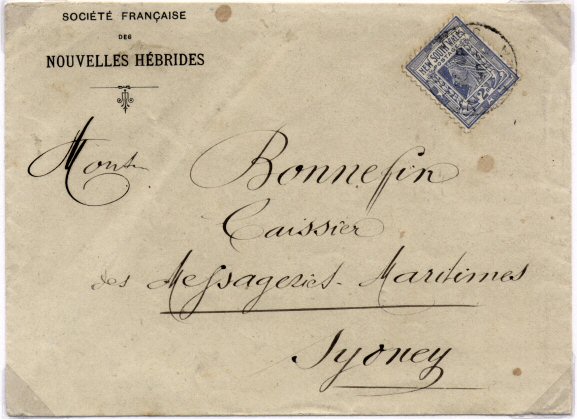 SOCIÉTÉ FRANÇAISE
DES
NOUVELLES HÉBRIDES
NEW SOUTH WALES
Monr
Bonnefin
Caissier
des Messageries-Maritimes
Sydney